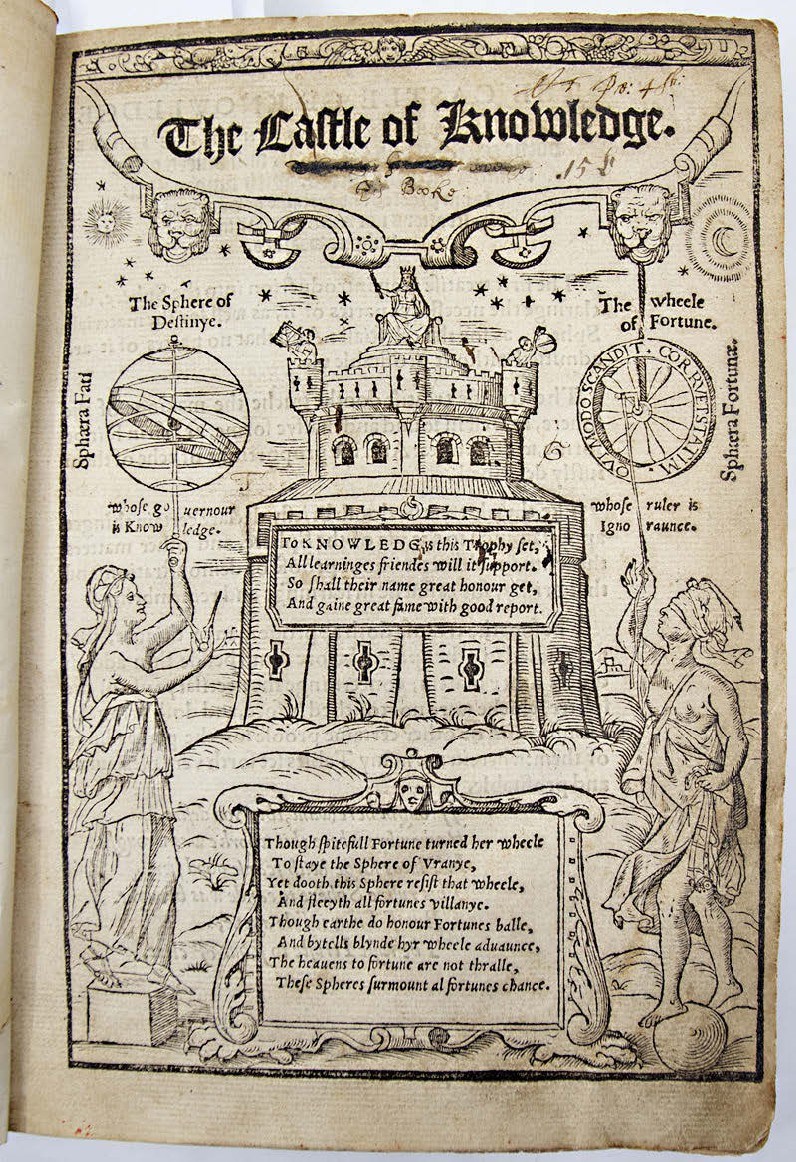 The Caſtle of Knowledge.
Booke
The Sphere of
Deſtinye.
The wheele
of Fortune.
Sphæra Fati
QVI MODO SCANDIT · CORRVET STATIM.
Sphæra Fortunæ.
whoſe gouernour
is Knowledge.
whoſe ruler is
Ignoraunce.
To KNOWLEDG is this Trophy ſet,
All learninges friendes will it ſupport.
So ſhall their name great honour get,
And gaine great fame with good report.
Though ſpitefull Fortune turned her wheele
To ſtaye the Sphere of Vranye,
Yet dooth this Sphere reſiſt that wheele,
And fleeyth all fortunes villanye.
Though earthe do honour Fortunes balle,
And bytells blynde hyr wheele aduaunce,
The heauens to fortune are not thralle,
Theſe Spheres ſurmount al fortunes chance.